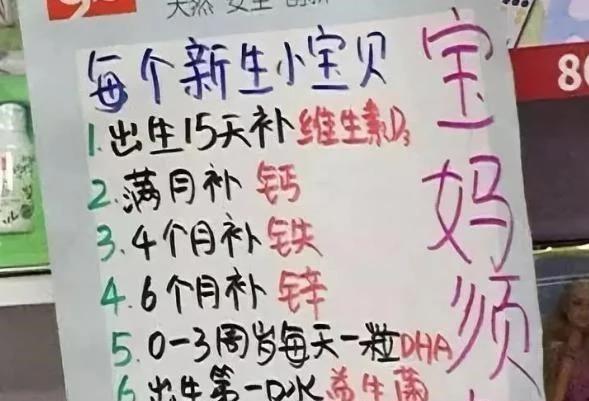 天然 安全 创新
每个新生小宝贝
1.出生15天补维生素D3
2.满月补钙
3.4个月补铁
4.6个月补锌
5.0-3周岁每天一粒DHA
6.出生第一口水益生菌
宝妈须
80